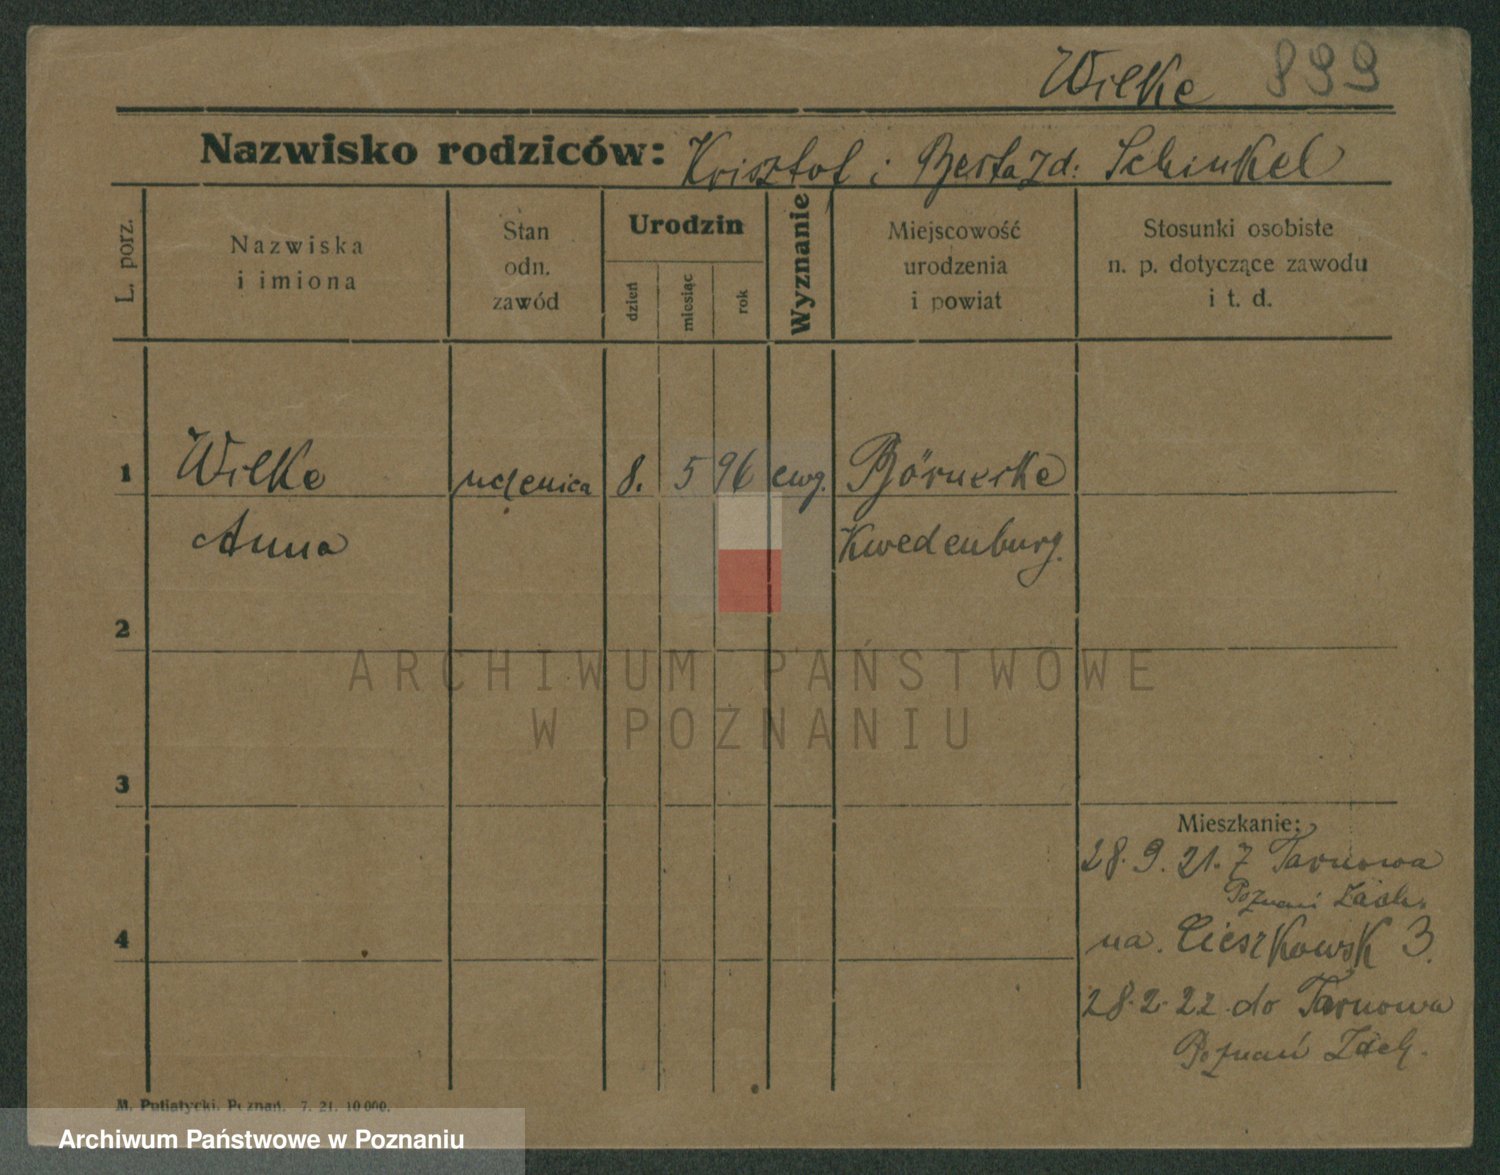 Wilke 899
Nazwisko rodziców: Krisztof i Berta zd: Schinkel
L. porz.
Nazwiska
i imiona
Stan
odn.
zawód
Urodzin
dzień
miesiąc
rok
Wyznanie
Miejscowość
urodzenia
i powiat
Stosunki osobiste
n. p. dotyczące zawodu
i t. d.
1 Wilke uczenica 8. 5 96 ewg. Börnecke
Anna Kwedenburg.
2
3
4
Mieszkanie:
28.9.21. z Tarnowa
Poznań Zach.
na. Cieszkowsk 3.
28.2.22 do Tarnowa
Poznań Zach.
M. Putiatycki, Poznań. 7. 21. 10000.
ARCHIWUM PAŃSTWOWE
W POZNANIU
Archiwum Państwowe w Poznaniu